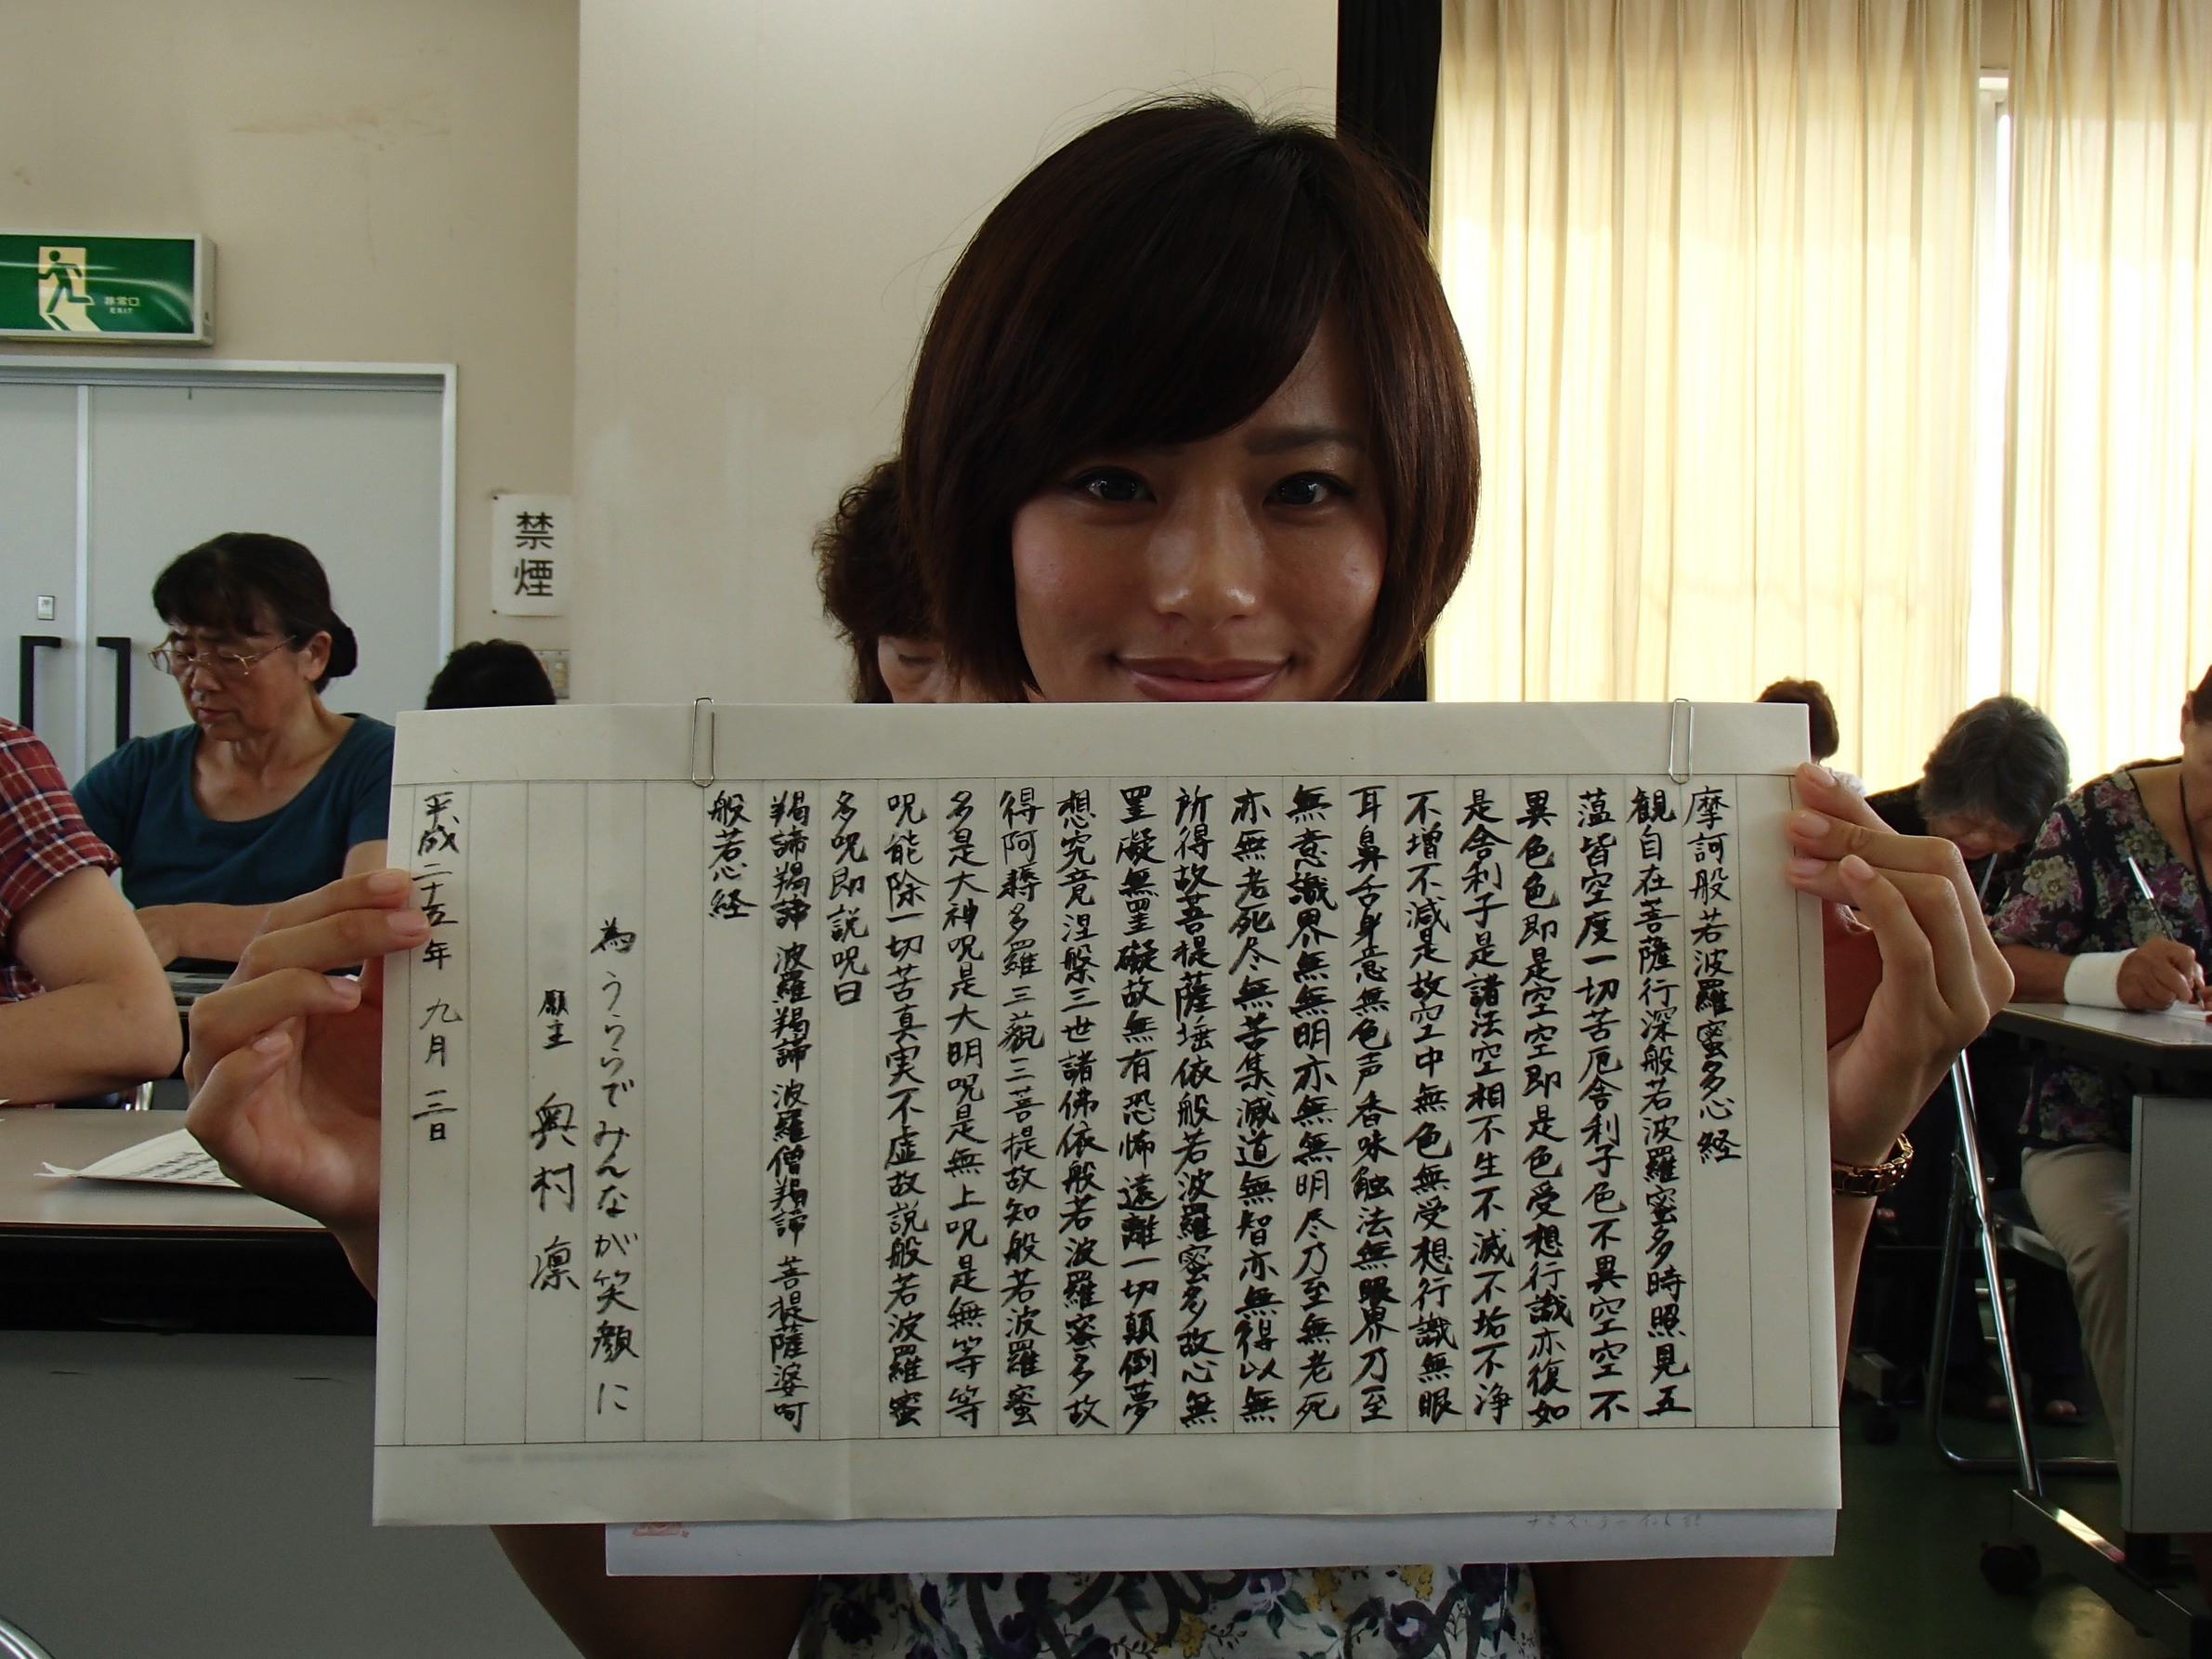 非常口
EXIT
禁煙
摩訶般若波羅蜜多心経
観自在菩薩行深般若波羅蜜多時照見五
薀皆空度一切苦厄舎利子色不異空空不
異色色即是空空即是色受想行識亦復如
是舎利子是諸法空相不生不滅不垢不浄
不増不減是故空中無色無受想行識無眼
耳鼻舌身意無色声香味触法無眼界乃至
無意識界無無明亦無無明尽乃至無老死
亦無老死尽無苦集滅道無智亦無得以無
所得故菩提薩埵依般若波羅蜜多故心無
罣礙無罣礙故無有恐怖遠離一切顛倒夢
想究竟涅槃三世諸佛依般若波羅蜜多故
得阿耨多羅三藐三菩提故知般若波羅蜜
多是大神呪是大明呪是無上呪是無等等
呪能除一切苦真実不虚故説般若波羅蜜
多呪即説呪曰
羯諦羯諦 波羅羯諦 波羅僧羯諦 菩提薩婆呵
般若心経
為 うららでみんなが笑顔に
願主 奥村 凛
平成二十五年 九月 三日